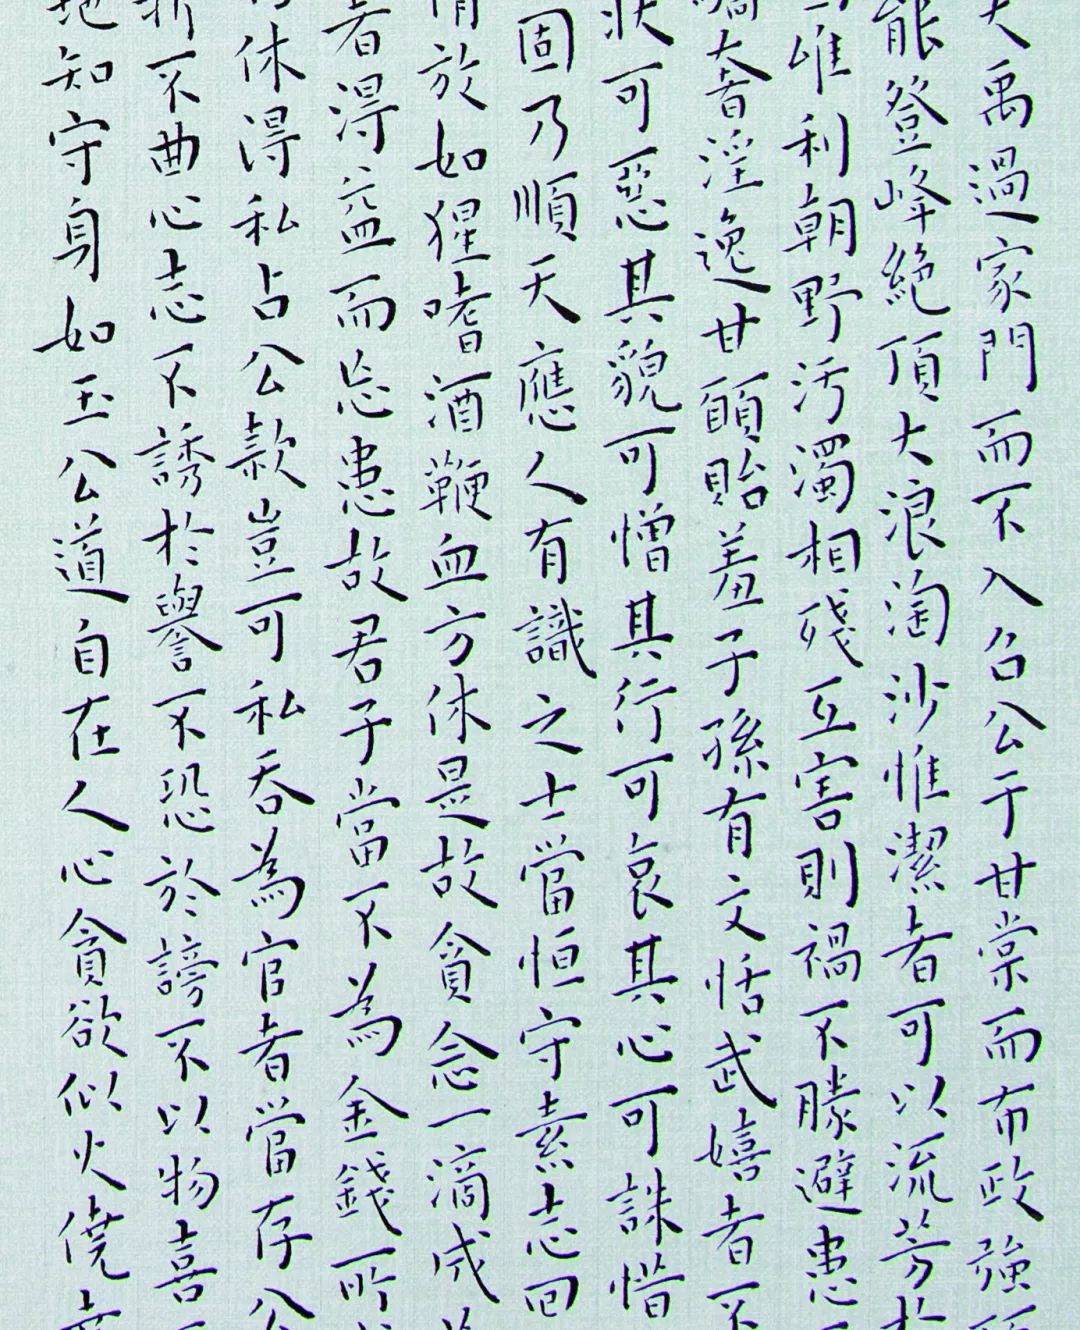 大禹過家門而不入召公于甘棠而布政強
能登峰絕頂大浪淘沙惟潔者可以流芳
唯利朝野污濁相殘互害則禍不勝避患
奢淫逸甘頤貽羞子孫有文恬武嬉者不
狀可惡其貌可憎其行可哀其心可誅惜
固乃順天應人有識之士當恒守素志回
放如猩嗜酒鞭血方休是故貪念一滴成
者得益而忘患故君子當不為金錢所
休得私占公款豈可私吞為官者當存公
折不曲心志不誘於譽不恐於謗不以物喜
地知守身如玉公道自在人心貪欲似火